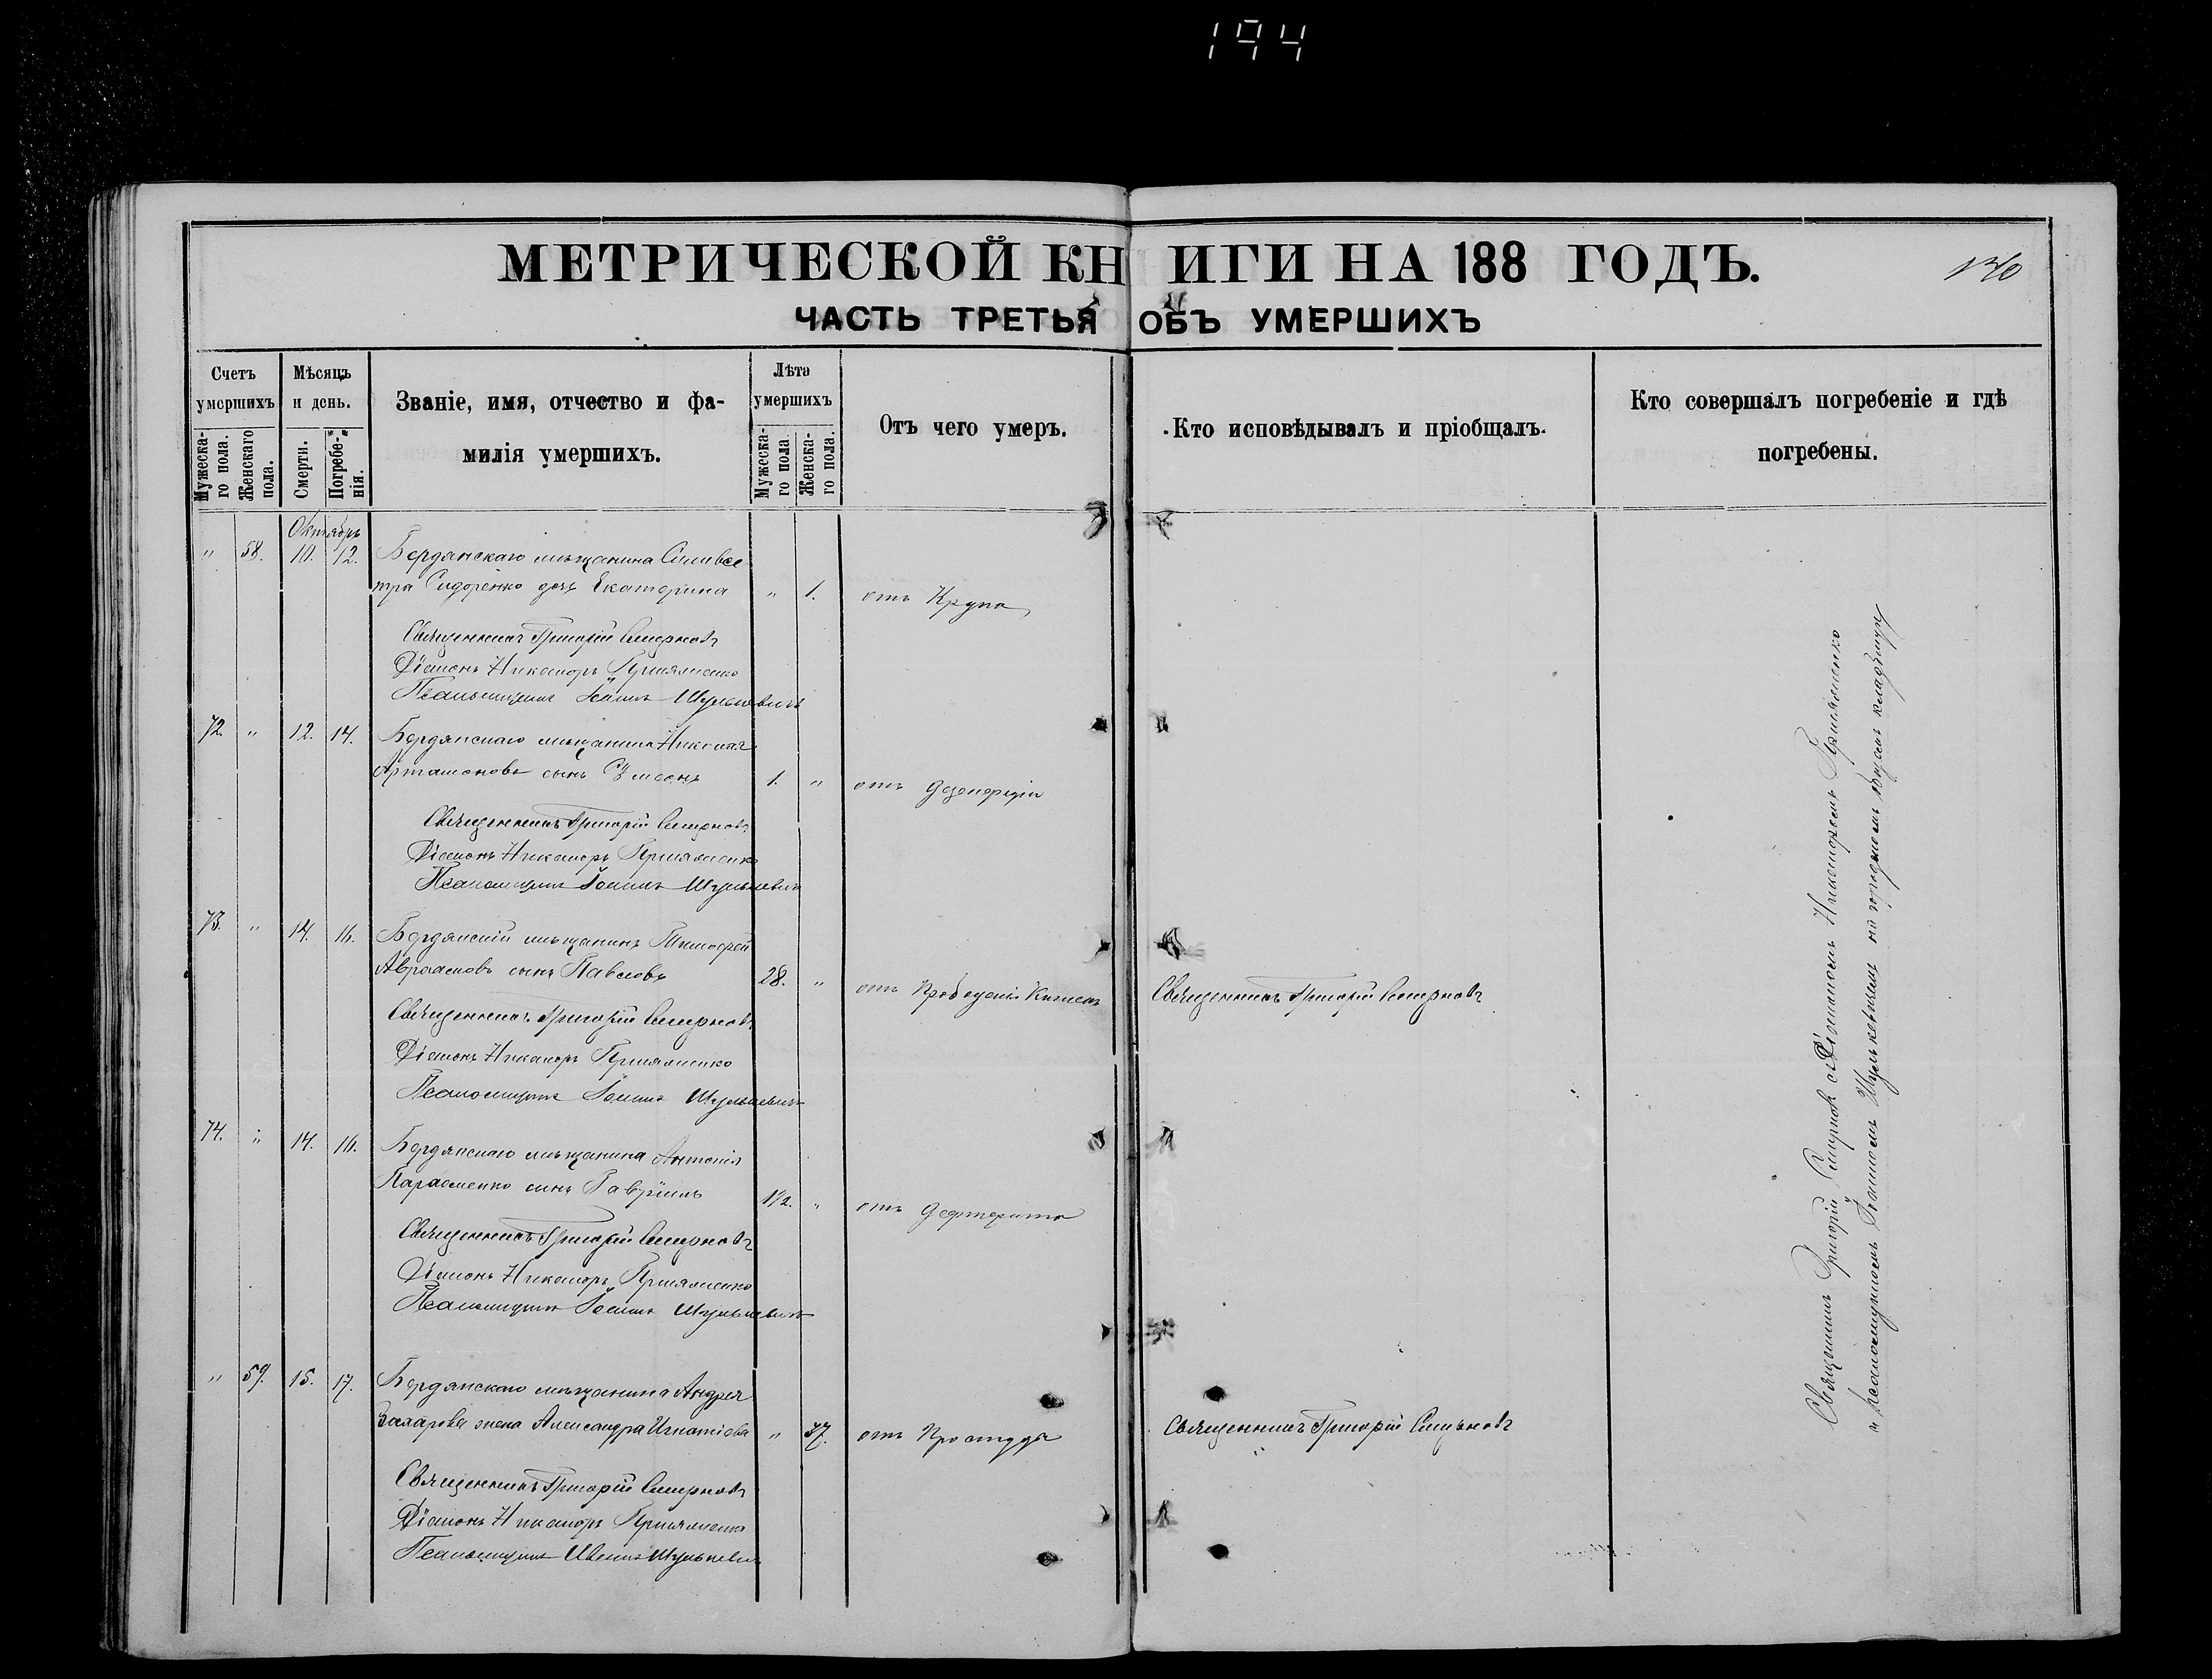 194
МЕТРИЧЕСКОЙ КНИГИ НА 188 ГОДЪ.
130
ЧАСТЬ ТРЕТЬЯ ОБЪ УМЕРШИХЪ
Счетъ умершихъ
Мужеска-го пола.
Женскаго пола.
Мѣсяцъ и день.
Смерти.
Погребе-нія.
Званіе, имя, отчество и фа-
милія умершихъ.
Лѣта умершихъ
Мужеска-го пола
Женска-го пола.
Отъ чего умеръ.
Кто исповѣдывалъ и пріобщалъ.
Кто совершалъ погребеніе и гдѣ
погребены.
Октябрь
" 58. 10. 12. Бердянскаго мѣщанина Сильвес
тра Сидоренко дочь Екатерина " 1. отъ Крупа
Священникъ Григорій Смирновъ
Діаконъ Никаноръ
Псаломщикъ Іоаннъ Шулькевичъ
72. " 12. 14. Бердянскаго мѣщанина Николая
Артамонова сынъ 1. " отъ дезентеріи
Священникъ Григорій Смирновъ
Діаконъ Никаноръ
Псаломщикъ Іоаннъ Шулькевичъ
73. " 14. 16. Бердянскій мѣщанинъ Тимофей
Авраамовъ сынъ Павловъ 28. " отъ
Священникъ Григорій Смирновъ
Священникъ Григорій Смирновъ
Діаконъ Никаноръ
Псаломщикъ Іоаннъ Шулькевичъ
74. " 14. 16. Бердянскаго мѣщанина Антонія
сынъ Гавріилъ 1/2. " отъ дефтерита
Священникъ Григорій Смирновъ
Діаконъ Никаноръ
Псаломщикъ Іоаннъ Шулькевичъ
" 59. 15. 17. Бердянскаго мѣщанина Андрея
Захарова жена Александра Игнатіева " 37. отъ Простуды
Священникъ Григорій Смирновъ
Священникъ Григорій Смирновъ
Діаконъ Никаноръ
Псаломщикъ Шулькевичъ
Священникъ Григорій Смирновъ съ Діакономъ Никаноромъ
и псаломщикомъ Іоанномъ Шулькевичемъ на городскомъ общемъ кладбищѣ